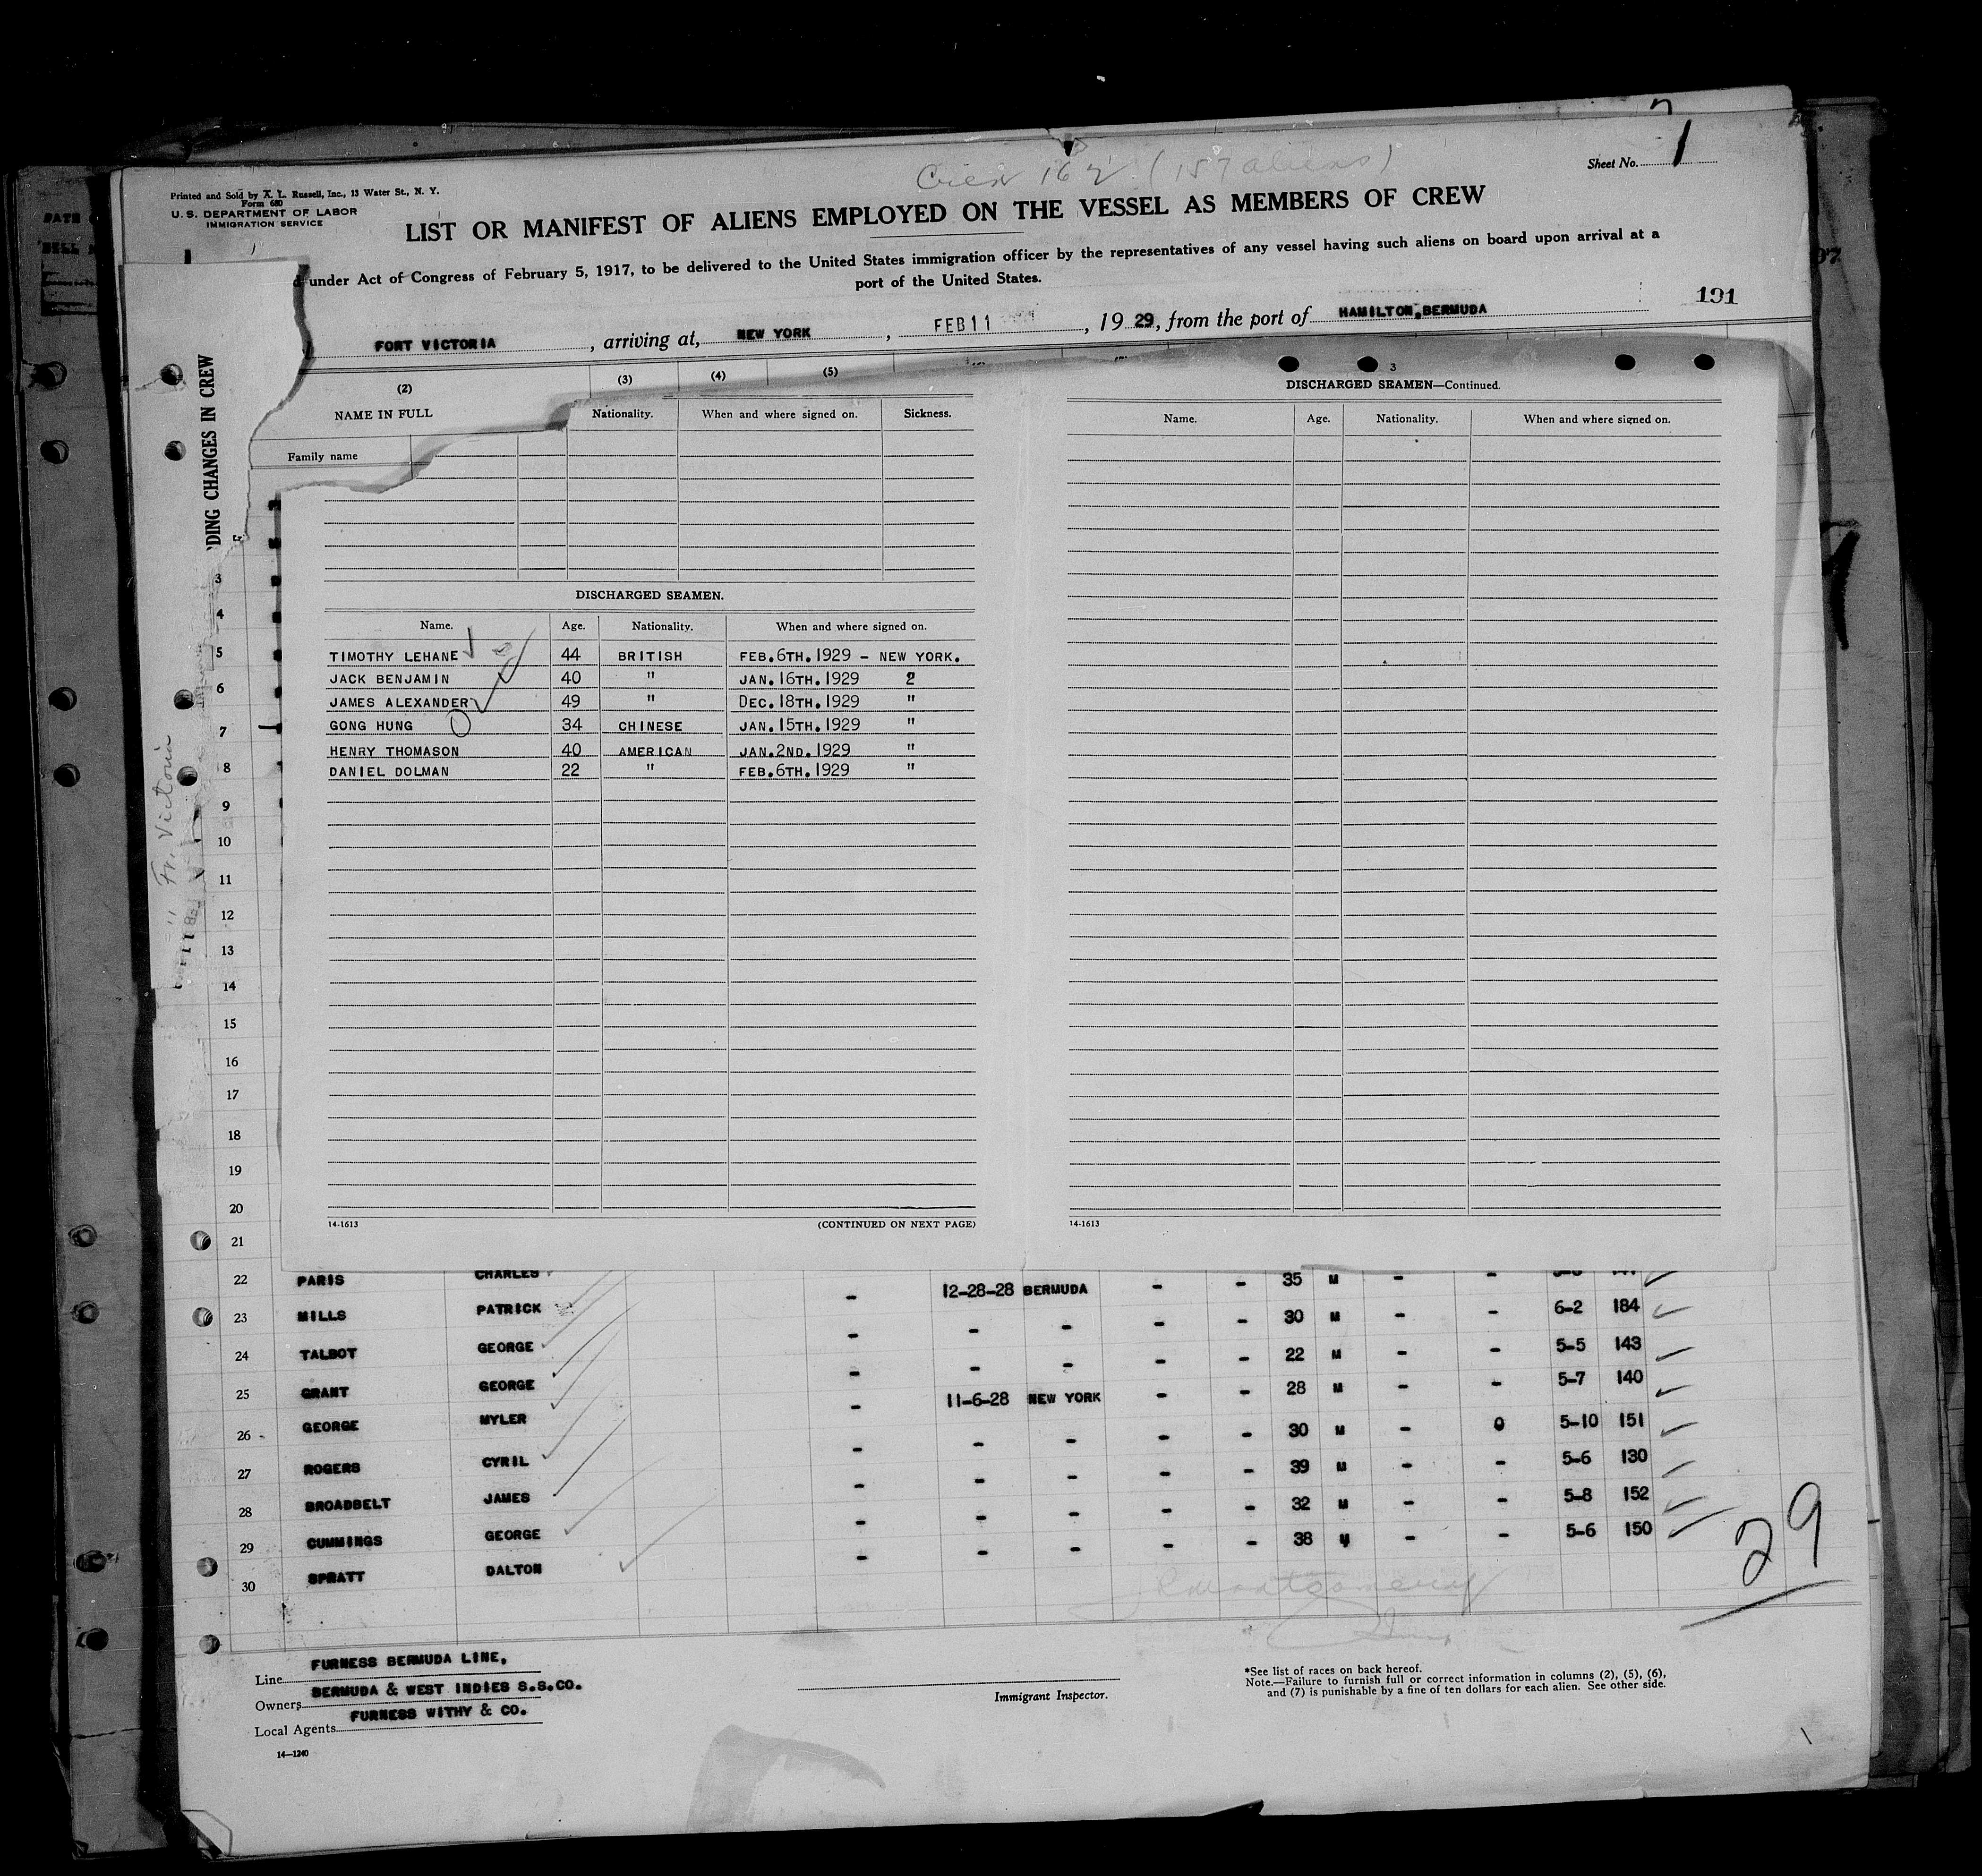 Crew 162 (157 aliens)
Sheet No. 1
Printed and Sold by A. L. Russell, Inc., 13 Water St., N. Y.
Form 680
U. S. DEPARTMENT OF LABOR
IMMIGRATION SERVICE
LIST OR MANIFEST OF ALIENS EMPLOYED ON THE VESSEL AS MEMBERS OF CREW
under Act of Congress of February 5, 1917, to be delivered to the United States immigration officer by the representatives of any vessel having such aliens on board upon arrival at a
port of the United States.
191
FORT VICTORIA, arriving at, NEW YORK, FEB 11, 19 29, from the port of HAMILTON, BERMUDA
DING CHANGES IN CREW
Ft. Victoria
(2) (3) (4) (5)
NAME IN FULL
Family name
Nationality. When and where signed on. Sickness.
3
DISCHARGED SEAMEN—Continued.
Name. Age. Nationality. When and where signed on.
DISCHARGED SEAMEN.
Name. Age. Nationality. When and where signed on.
TIMOTHY LEHANE 44 BRITISH FEB. 6TH. 1929 - NEW YORK.
JACK BENJAMIN 40 " JAN. 16TH. 1929 2
JAMES ALEXANDER 49 " DEC. 18TH. 1929 "
GONG HUNG 34 CHINESE JAN. 15TH. 1929 "
HENRY THOMASON 40 AMERICAN JAN. 2ND. 1929 "
DANIEL DOLMAN 22 " FEB. 6TH. 1929 "
3
4
5
6
7
8
9
10
11
12
13
14
15
16
17
18
19
20
21
14-1613 (CONTINUED ON NEXT PAGE)
14-1613
22 PARIS CHARLES - 12-28-28 BERMUDA - - 35 M - -
23 MILLS PATRICK - - - - - 30 M - - 6-2 184
24 TALBOT GEORGE - - - - - 22 M - - 5-5 143
25 GRANT GEORGE - 11-6-28 NEW YORK - - 28 M - - 5-7 140
26 GEORGE MYLER - - - - - 30 M - 0 5-10 151
27 ROGERS CYRIL - - - - - 39 M - - 5-6 130
28 BROADBELT JAMES - - - - - 32 M - - 5-8 152
29 CUMMINGS GEORGE - - - - - 38 M - - 5-6 150
30 SPRATT DALTON
29
Line FURNESS BERMUDA LINE,
Owners BERMUDA & WEST INDIES S.S.CO.
Local Agents FURNESS WITHY & CO.
14—1240
Immigrant Inspector.
*See list of races on back hereof.
Note.—Failure to furnish full or correct information in columns (2), (5), (6),
and (7) is punishable by a fine of ten dollars for each alien. See other side.